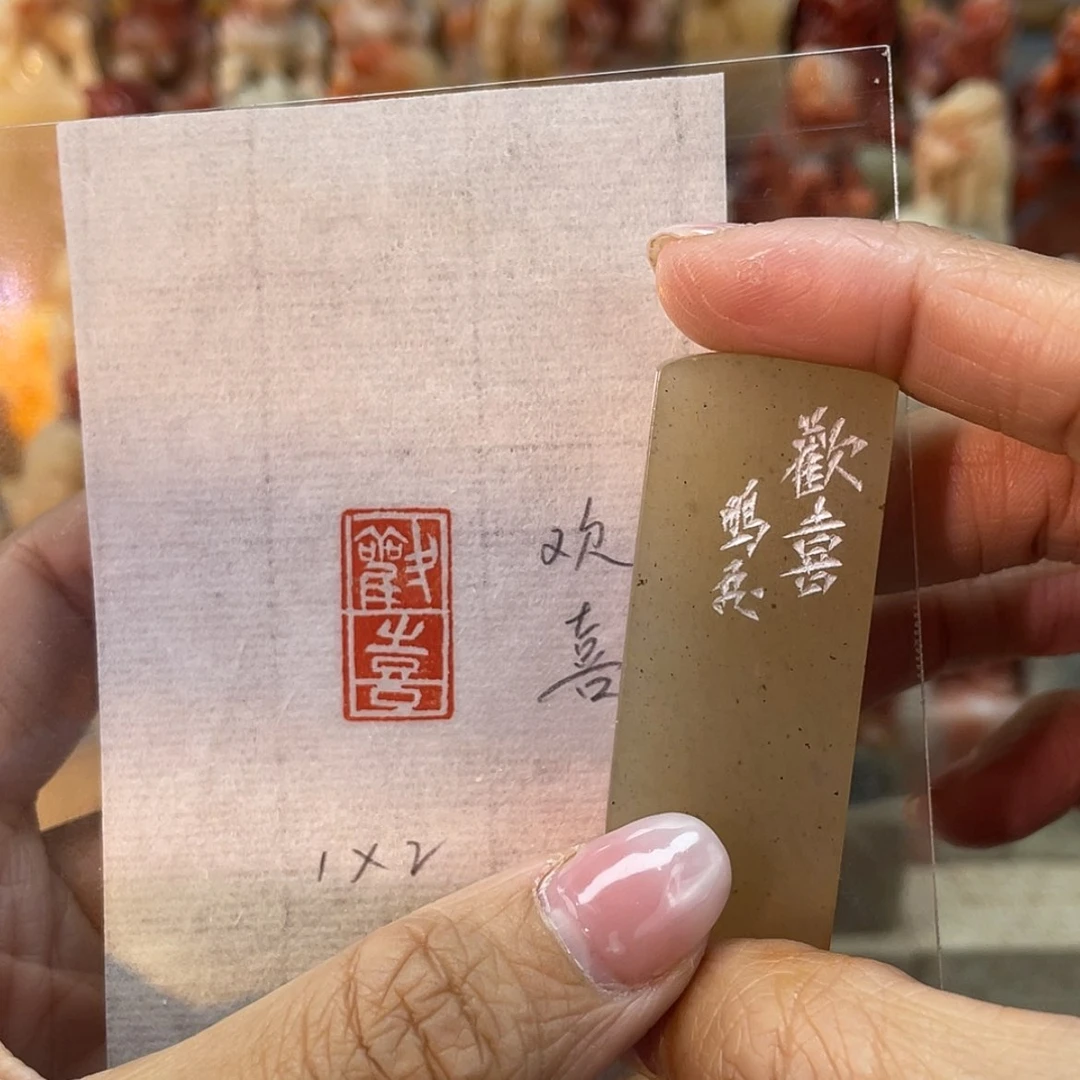 歡喜
欢喜
1×2
歡喜